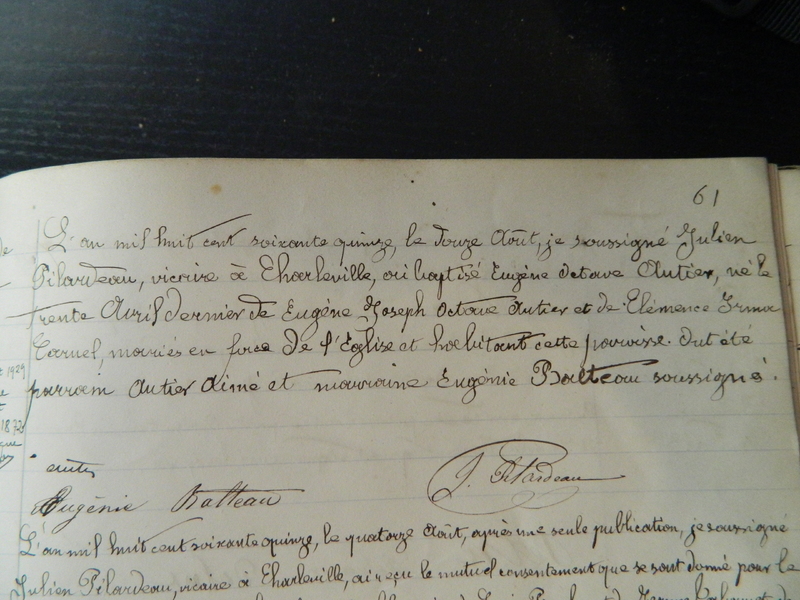 61
L'an mil huit cent soixante quinze, le douze Août, je soussigné Julien
Pilardeau, vicaire à Charleville, ai baptisé Eugène Octave Autier, né le
trente Avril dernier de Eugène Joseph Octave Autier et de Clémence Irma
mariés en face de l'Eglise et habitant cette paroisse. Ont été
parrain Autier Aimé et marraine Eugénie Balteau soussignés.
1929
1872
J. Pilardeau
Eugénie Balteau
L'an mil huit cent soixante quinze, le quatorze Août, après une seule publication, je soussigné
Julien Pilardeau, vicaire à Charleville, ai reçu le mutuel consentement que se sont donné pour le